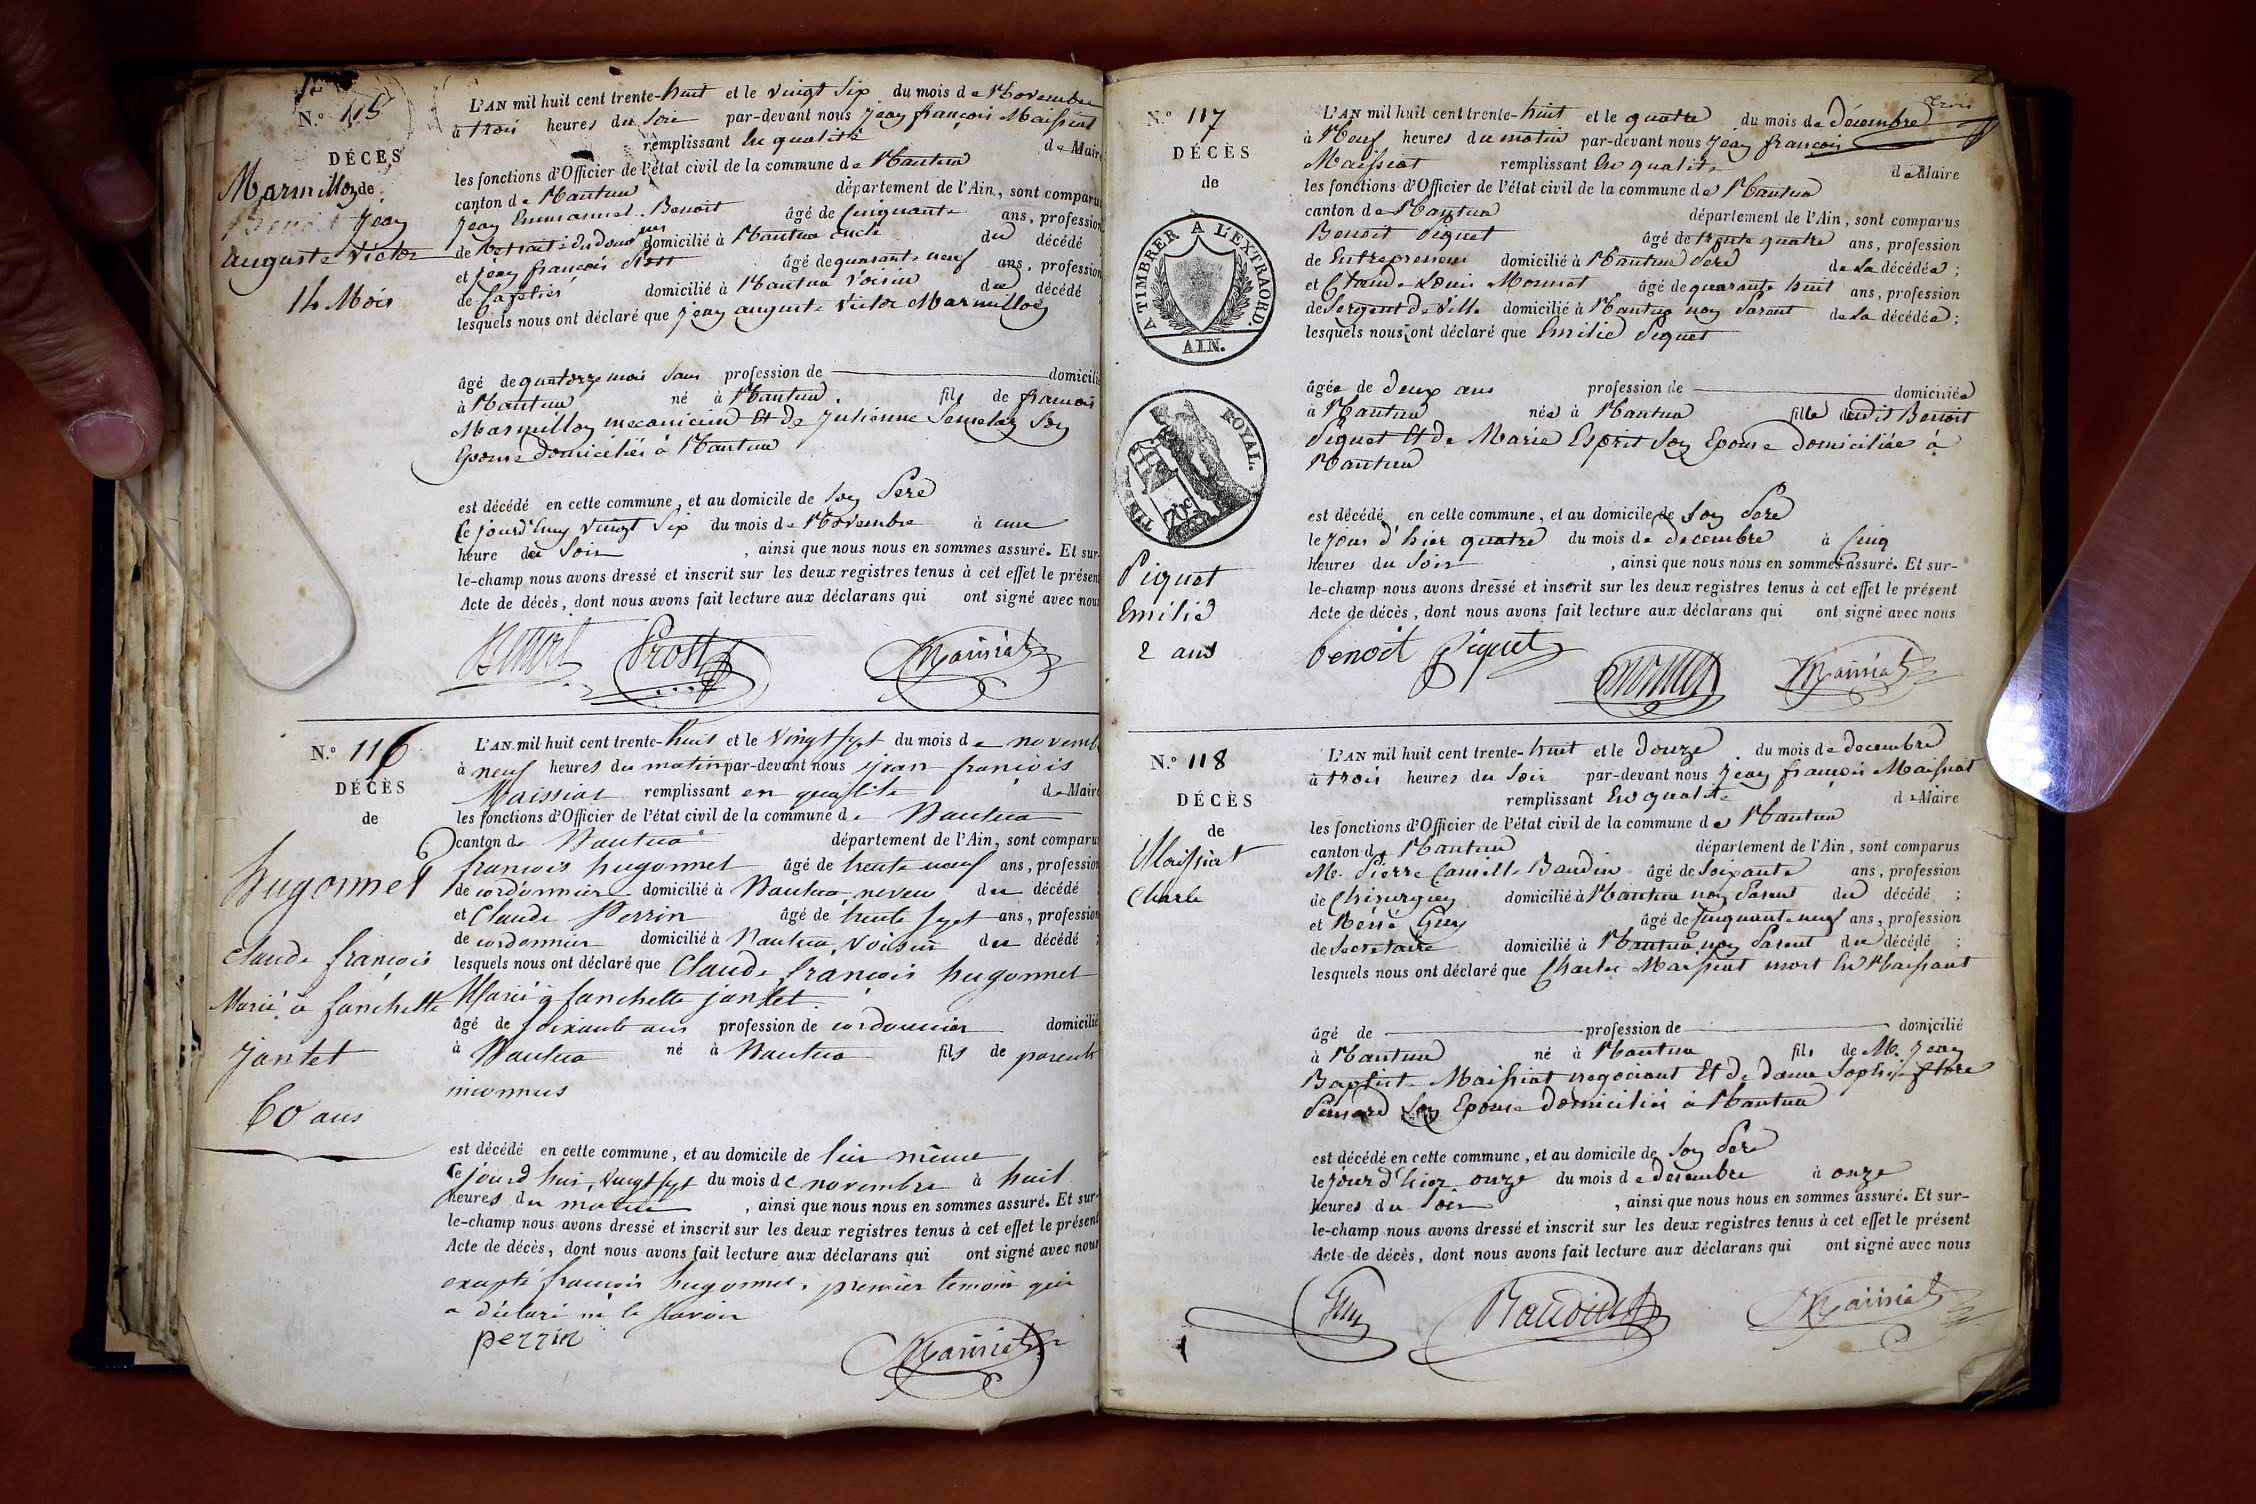 N.º 115
DÉCÈS
Marmillon de
Benoit Jean
auguste Victor
14 Mois
L'AN mil huit cent trente-huit et le vingt Six du mois de Novembre
à trois heures du Soir par-devant nous Jean françois Maissiat
remplissant En qualité de Maire
les fonctions d'Officier de l'état civil de la commune de Nantua
canton de Nantua département de l'Ain, sont comparus
Jean Emmanuel Benoit âgé de Cinquante ans, profession
de domicilié à Nantua oncle du décédé
et Jean françois Prost âgé de quarante neuf ans, profession
de Cafetier domicilié à Nantua Voisin du décédé
lesquels nous ont déclaré que Jean auguste Victor Marmillon
âgé de quatorze mois Sans profession de domicilié
à Nantua né à Nantua fils de francois
Marmillon mecanicien Et de Julienne Son
Epouse domiciliés à Nantua
est décédé en cette commune, et au domicile de Son Pere
Ce jourd'huy vingt Six du mois de Novembre à une
heure du Soir, ainsi que nous nous en sommes assuré. Et sur-
le-champ nous avons dressé et inscrit sur les deux registres tenus à cet effet le présent
Acte de décès, dont nous avons fait lecture aux déclarans qui ont signé avec nous
Benoit Prost Maissiat
N.º 116
DÉCÈS
de
hugonnet
Claude françois
Marié à fanchette
jantet
60 ans
L'AN mil huit cent trente-huit et le Vingt sept du mois de novembre
à neuf heures du matin par-devant nous jean françois
Maissiat remplissant en qualité de Maire
les fonctions d'Officier de l'état civil de la commune de Nantua
canton de Nantua département de l'Ain, sont comparus
françois hugonnet âgé de trente neuf ans, profession
de cordonnier domicilié à Nantua, neveu du décédé
et Claude Perrin âgé de trente sept ans, profession
de cordonnier domicilié à Nantua, Voisin du décédé ;
lesquels nous ont déclaré que Claude françois hugonnet
Marié à fanchette jantet
âgé de soixante ans profession de cordonnier domicilié
à Nantua né à Nantua fils de parents
inconnus
est décédé en cette commune, et au domicile de lui même
Ce jourd'hui vingt sept du mois de novembre à huit
heures du matin, ainsi que nous nous en sommes assuré. Et sur-
le-champ nous avons dressé et inscrit sur les deux registres tenus à cet effet le présent
Acte de décès, dont nous avons fait lecture aux déclarans qui ont signé avec nous
excepté françois hugonnet, premier temoin qui
a déclaré ne le savoir
perrin Maissiat
trois
N.º 117
DÉCÈS
de
A TIMBRER A L'EXTRAORD.
AIN.
TIMBRE ROYAL.
70c
Piquet
Emilie
2 ans
L'AN mil huit cent trente-huit et le quatre du mois de décembre
à Neuf heures du matin par-devant nous Jean francois
Maissiat remplissant En qualité de Maire
les fonctions d'Officier de l'état civil de la commune de Nantua
canton de Nantua département de l'Ain, sont comparus
Benoit Piquet âgé de trente quatre ans, profession
de Entrepreneur domicilié à Nantua Pere de la décédée ;
et Claude Louis Monnet âgé de quarante huit ans, profession
de Sergent de Ville domicilié à Nantua non Parent de la décédée ;
lesquels nous ont déclaré que Emilie Piquet
âgée de deux ans profession de domiciliée
à Nantua née à Nantua fille dudit Benoit
Piquet Et de Marie Esprit Son Epouse domiciliée à
Nantua
est décédé en cette commune, et au domicile de Son Pere
le jour d'hier quatre du mois de decembre à Cinq
heures du Soir, ainsi que nous nous en sommes assuré. Et sur-
le-champ nous avons dressé et inscrit sur les deux registres tenus à cet effet le présent
Acte de décès, dont nous avons fait lecture aux déclarans qui ont signé avec nous
benoit piquet monnet Maissiat
N.º 118
DÉCÈS
de
Maissiat
Charle
L'AN mil huit cent trente-huit et le douze du mois de decembre
à trois heures du Soir par-devant nous Jean francois Maissiat
remplissant En qualité de Maire
les fonctions d'Officier de l'état civil de la commune de Nantua
canton de Nantua département de l'Ain, sont comparus
M. Pierre Camille Baudin âgé de Soixante ans, profession
de Chirurgien domicilié à Nantua non Parent du décédé ;
et Réné Guy âgé de Cinquante neuf ans, profession
de Secretaire domicilié à Nantua non Parent du décédé ;
lesquels nous ont déclaré que Charles Maissiat mort En Naissant
âgé de profession de domicilié
à Nantua né à Nantua fils de M. Jean
Baptiste Maissiat negociant Et de dame Sophie flore
Son Epouse domiciliés à Nantua
est décédé en cette commune, et au domicile de Son Pere
le jour d'hier onze du mois de decembre à onze
heures du Soir, ainsi que nous nous en sommes assuré. Et sur-
le-champ nous avons dressé et inscrit sur les deux registres tenus à cet effet le présent
Acte de décès, dont nous avons fait lecture aux déclarans qui ont signé avec nous
Guy Baudin Maissiat